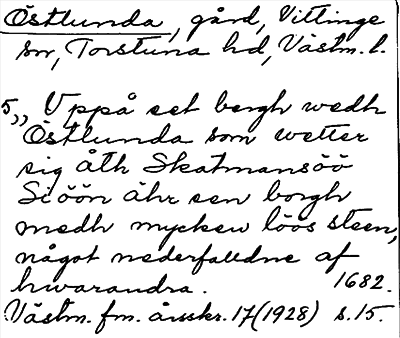 Östlunda, gård, Vittinge
sn, Torstuna hd, Västm. l.
5,, Uppå ett bergh wedh
Östlunda som wetter
sig åth Skatmansöö
Siöön ähr een borgh
medh mycken löös steen,
något nederfalldne af
hwarandra. 1682.
Västm. fm. årsskr. 17 (1928) s. 15.